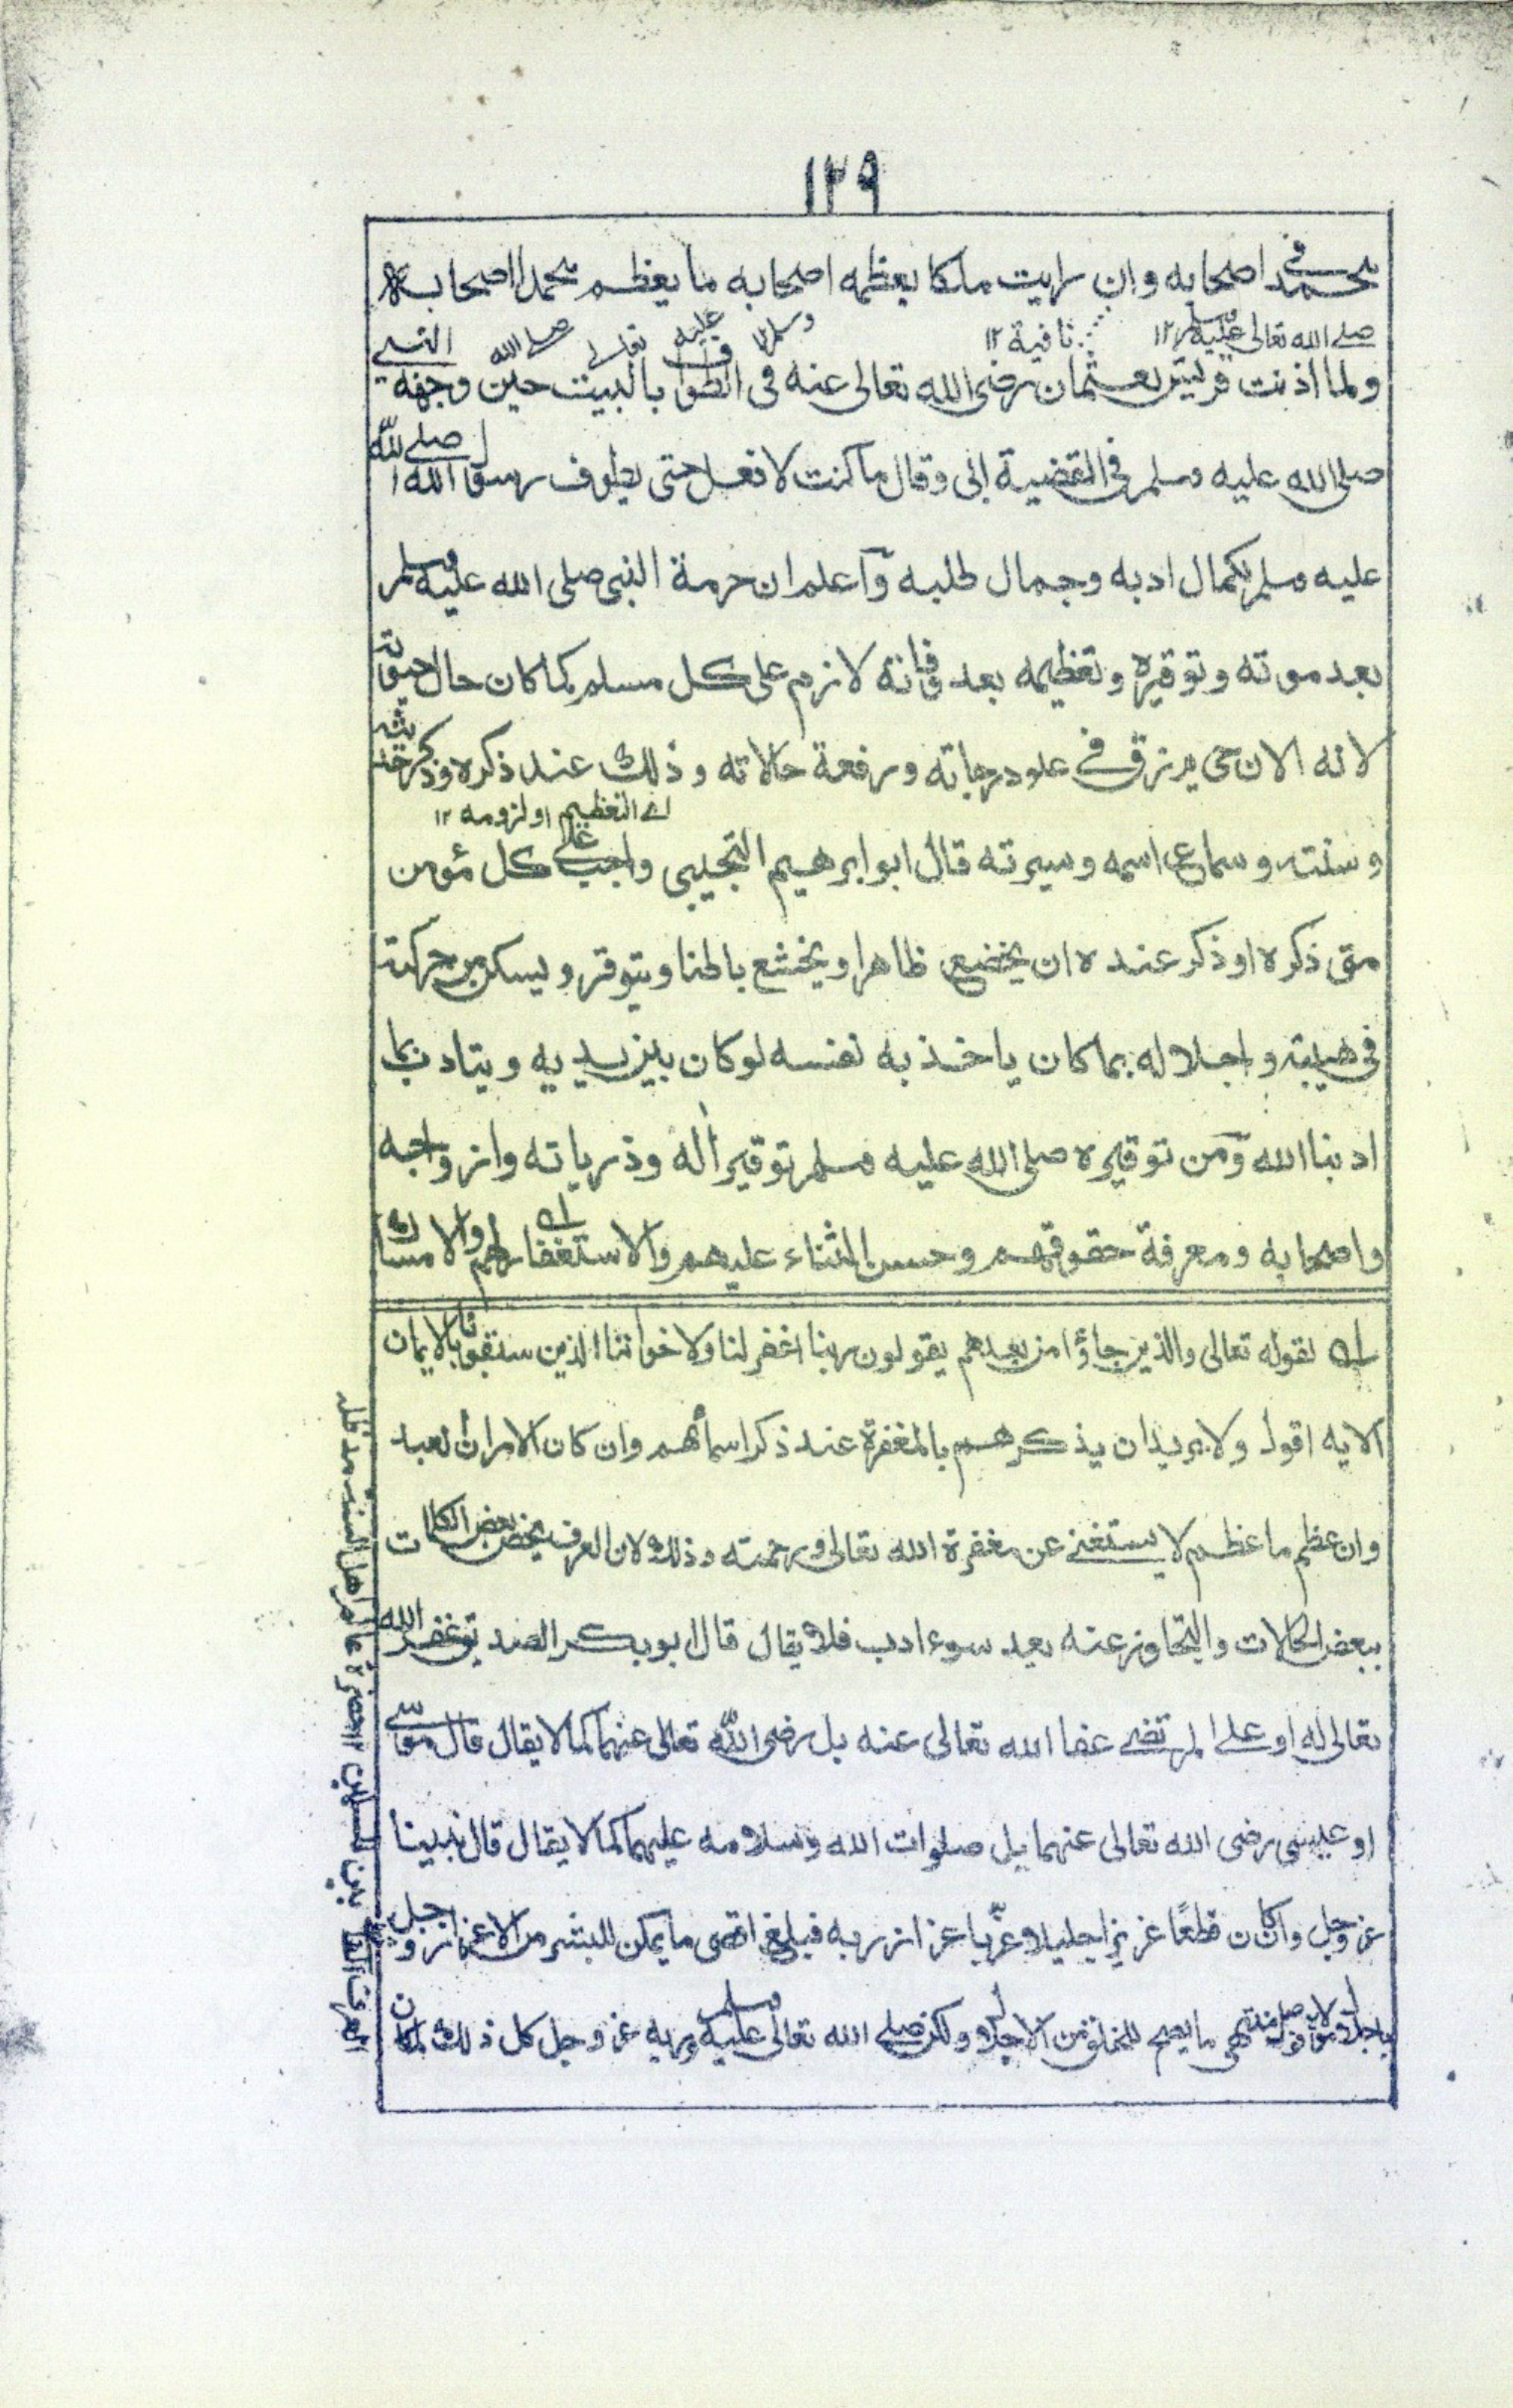 ١٢٩
محمد في اصحابه وان رايت ملكا يعظمه اصحابه ما يعظم محمدا اصحابه
صلے الله تعالى عليه وسلم ١٢ نافية ١٢
ولما اذنت قريش لعثمان رضى الله تعالى عنه فى الطواف بالبيت حين وجهه النبے صلے الله تعالے عليه وسلم ١٢
صلى الله عليه وسلم فى القضية ابى وقال ما كنت لافعل حتى يطوف رسول الله صلے الله
عليه وسلم لكمال ادبه وجمال طلبه وآعلم ان حرمة النبى صلى الله عليه وسلم
بعد موته وتوقيره وتعظيمه بعد وفاته لازم على كل مسلم كما كان حال حيوته
لانه الان حى يرزق فے علو درجاته ورفعة حالاته وذلك عند ذكره وذكر حديثه
اے التعظيم او لزومه ١٢
وسنته وسماع اسمه وسيرته قال ابو ابرهيم التجيبى واجب علے كل مؤمن
متى ذكره او ذكر عنده ان يخضع ظاهرا ويخشع باطنا ويتوقر ويسكن من حركته
فى هيبته واجلاله بما كان ياخذ به نفسه لو كان بين يديه ويتادب بما
ادبنا الله وآمن توقيره صلى الله عليه وسلم توقير أله وذرياته وازواجه
واصحابه ومعرفة حقوقهم وحسن الثناء عليهم والاستغفار لهم والامساك
لقوله تعالى والذين جاؤا من بعدهم يقولون ربنا اغفر لنا ولاخواننا الذين سبقونا بالايمان
الايه اقول ولا يريد ان يذكرهم بالمغفرة عند ذكر اسمائهم وان كان الامر ان العبد
وان عظم ما عظم لا يستغنے عن مغفرة الله تعالى ورحمته وذلك لان العرف يخص بعض الكلمات
ببعض الحالات والتجاوز عنه يعد سوء ادب فلا يقال قال ابو بكر الصديق غفر الله
تعالى له او علے المرتضے عفا الله تعالى عنه بل رضى الله تعالى عنهما كما لا يقال قال موسے
او عيسى رضى الله تعالى عنهما بل صلوات الله وسلامه عليهما كما لا يقال قال نبينا
عز وجل وان كان قطعًا عزيزا جليلا عزّ باعزاز ربه فبلغ اقصى ما يمكن للبشر من الاعزاز وجل
باجلال مولاه فوصل منتهى ما يصح للمخلوق من الاجلال ولكن صلے الله تعالى عليه وسلم وربه عز وجل كل ذلك لما كان